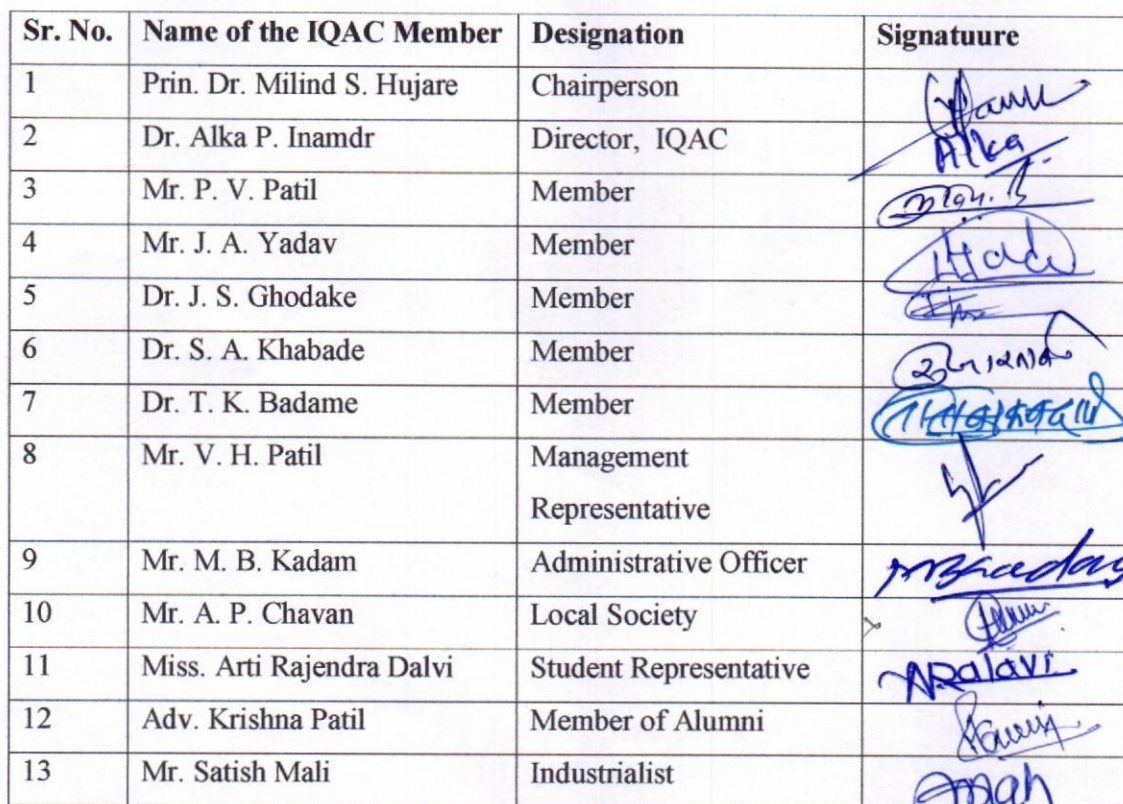 Sr. No. Name of the IQAC Member Designation Signatuure
1 Prin. Dr. Milind S. Hujare Chairperson
2 Dr. Alka P. Inamdr Director, IQAC Alka
3 Mr. P. V. Patil Member
4 Mr. J. A. Yadav Member
5 Dr. J. S. Ghodake Member
6 Dr. S. A. Khabade Member
7 Dr. T. K. Badame Member
8 Mr. V. H. Patil Management
Representative
9 Mr. M. B. Kadam Administrative Officer
10 Mr. A. P. Chavan Local Society
11 Miss. Arti Rajendra Dalvi Student Representative
12 Adv. Krishna Patil Member of Alumni
13 Mr. Satish Mali Industrialist